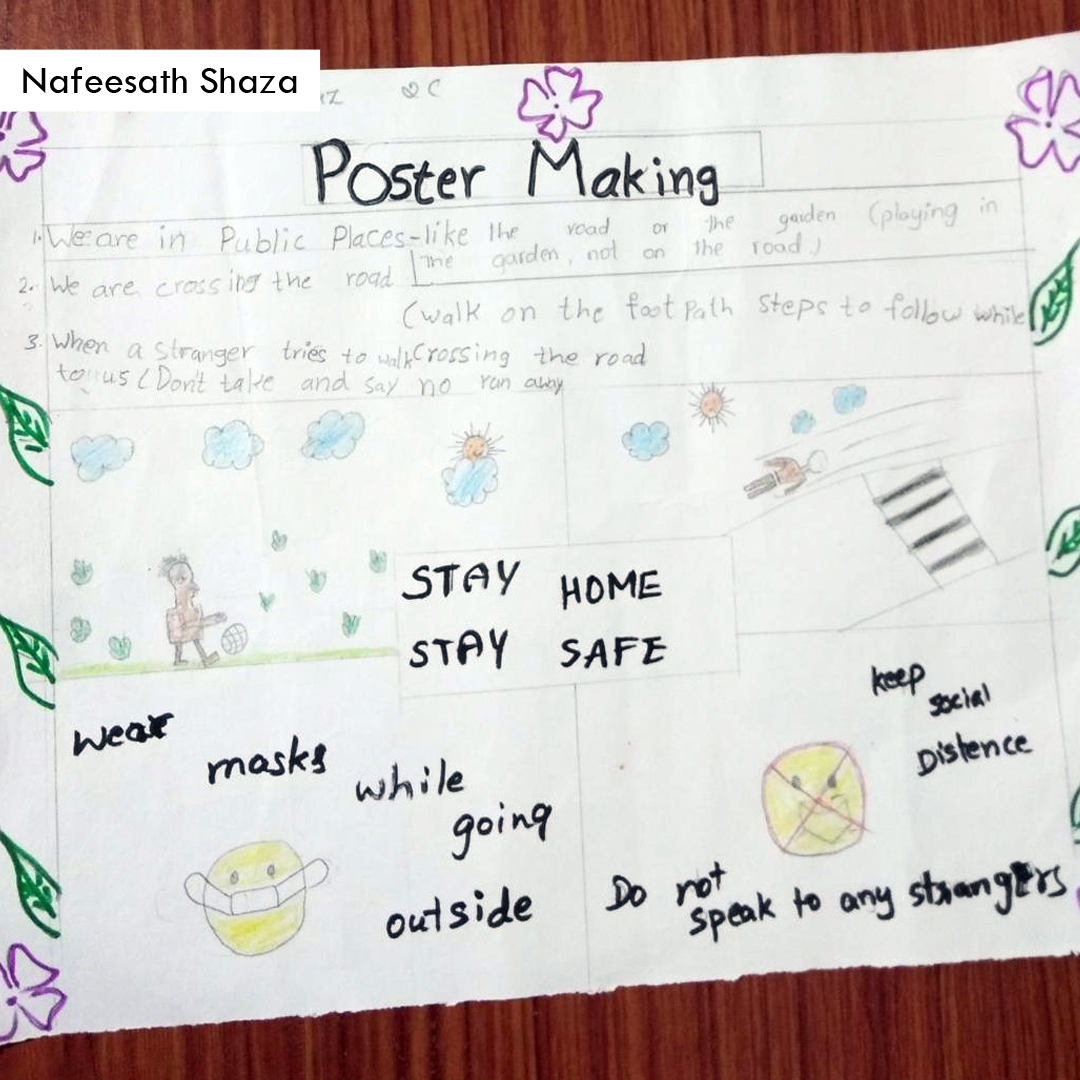 Nafeesath Shaza
2 C
Poster Making
1. We are in Public Places-like the road or the garden (playing in
the garden, not on the road.)
2. We are crossing the road
(walk on the foot Path steps to follow while
crossing the road
3. When a stranger tries to walk
to us (Don't take and say no run away
STAY HOME
STAY SAFE
wear
masks
while
going
outside
keep
social
Distence
Do not
speak to any strangers